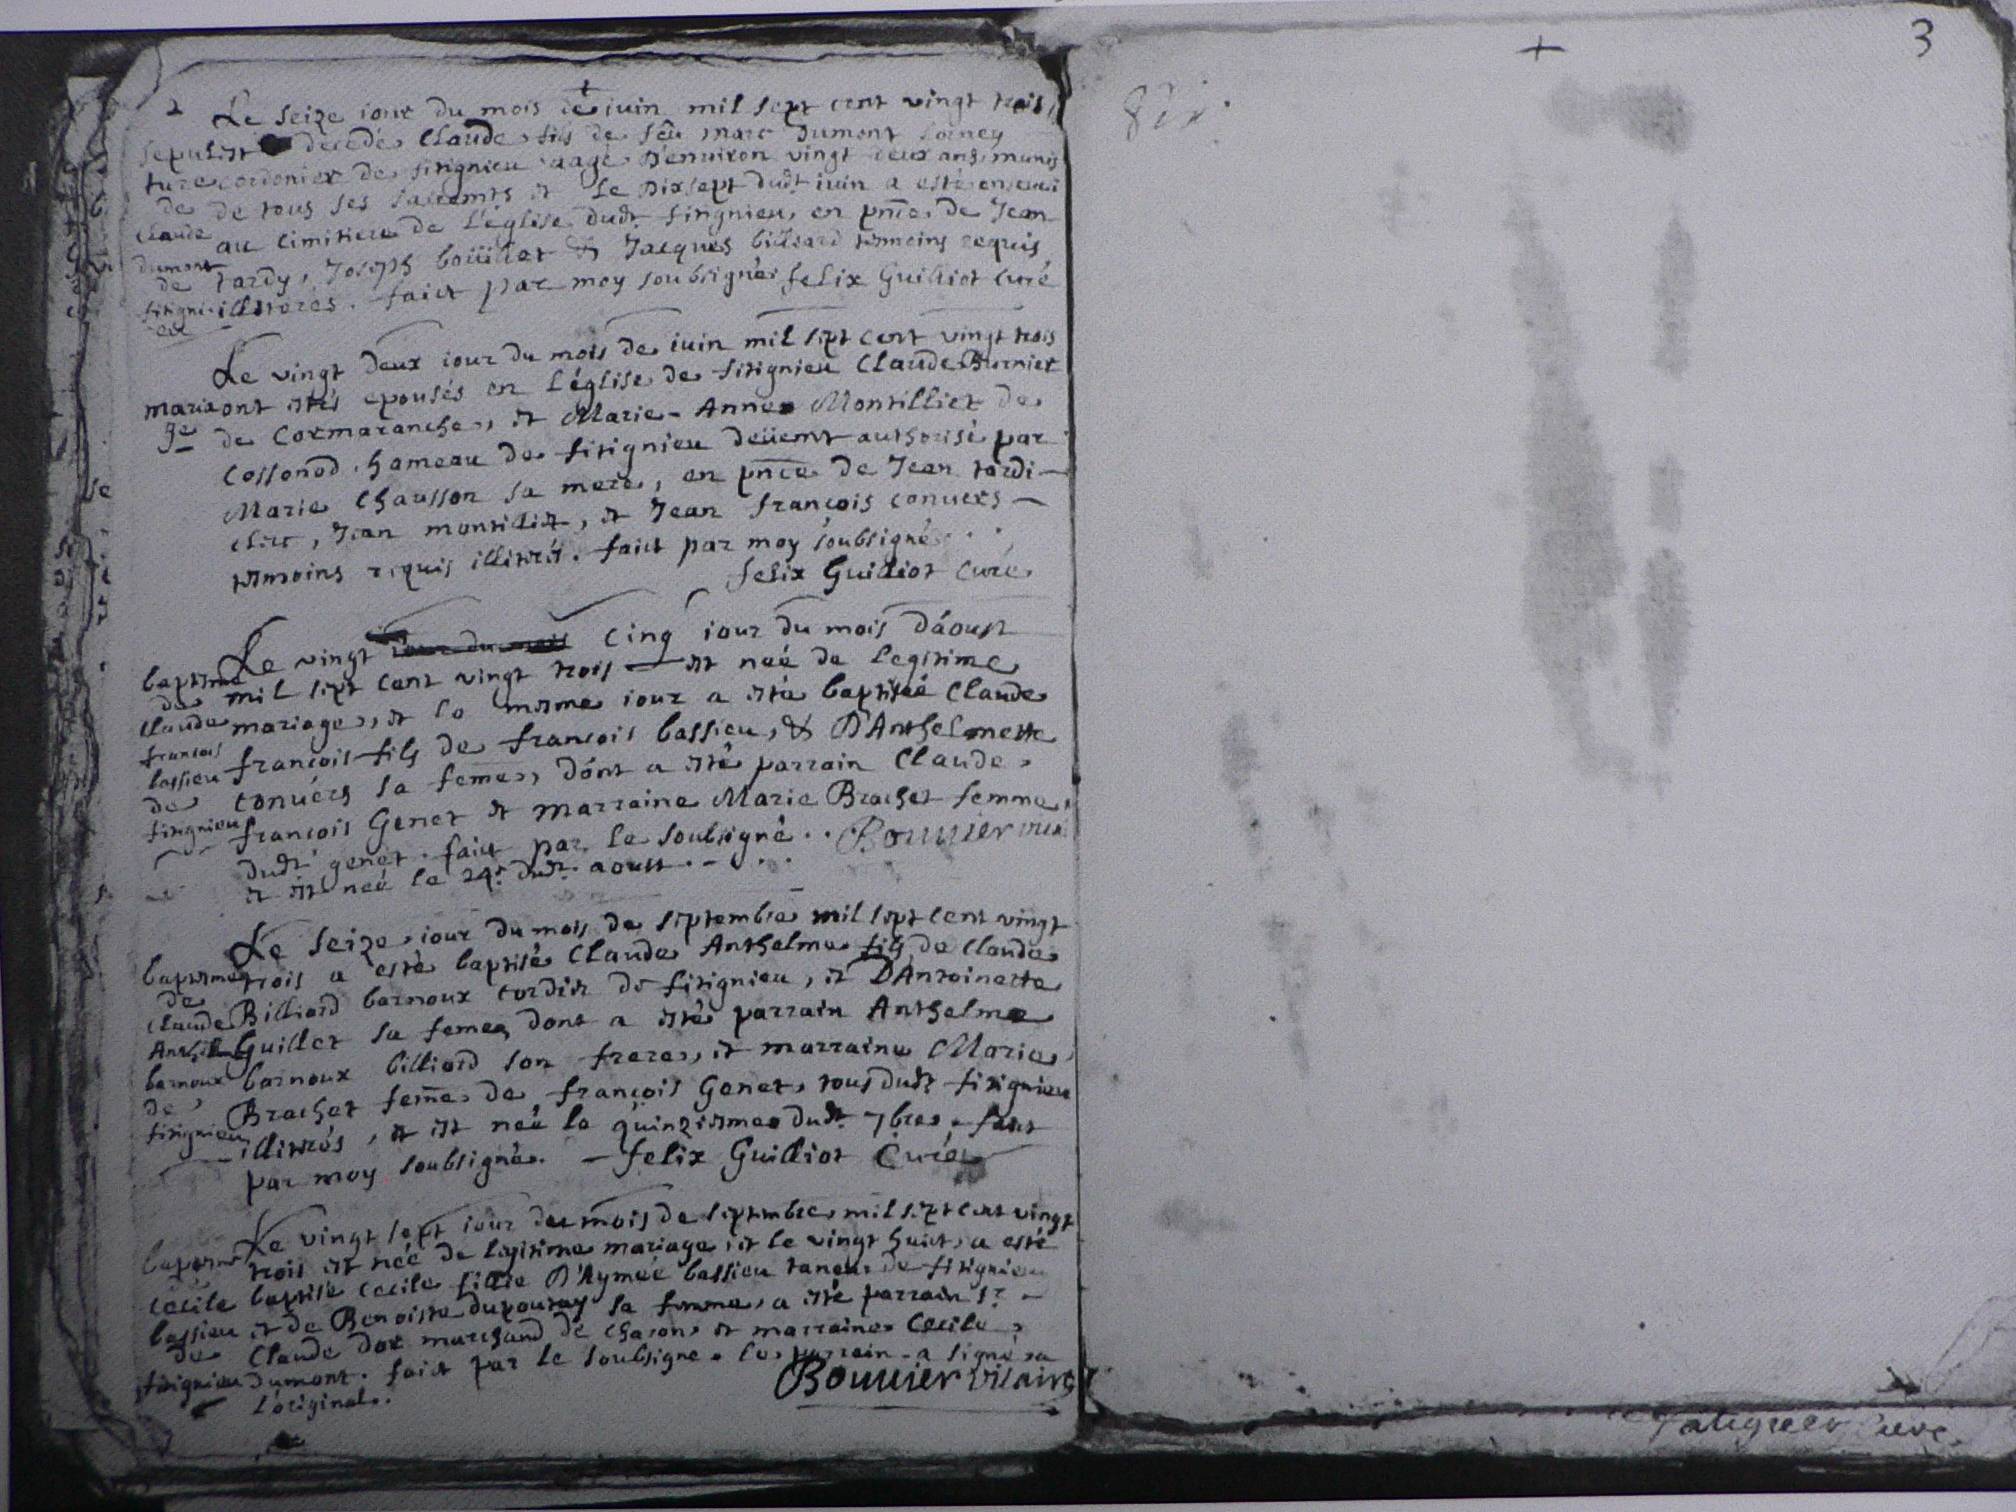 3
2 Le seize iour du mois de iuin mil sept cent vingt trois
est decedé Claude fils de feu marc Dumont
cordonier de sitignieu aagé D'enuiron vingt deux ans, munis
de tous ses sacremts et le Dixsept dudt iuin a esté enseueli
au cimitiere de l'église dudt sitignieu, en pnce de Jean
Tardy, Joseph boüillet & Jacques billiard temoins requis
illiteres. faict par moy soubsigné felix Guilliot curé
sepulture
de
claude
dumont
de
sitigni
eu
Le vingt deux iour du mois de iuin mil sept cent vingt trois
ont estés epousés en l'église de sitignieu Claude Burniet
de Cormaranche, et Marie-Anne Montilliet de
Cossonod hameau de sitignieu deüemt authorisé par
Marie Chausson sa mere, en pnce de Jean tardi
clerc, Jean montillet, et Jean francois conuers
temoins requis illiterés. faict par moy soubsigné
felix Guilliot curé
maria
ge
Le vingt iour du mois cinq iour du mois D'áoust
mil sept cent vingt trois est neé de legitime
mariage, et le mesme iour a esté baptiseé Claude
francois fils de francois bassieu, & D'Anthelmette
conuérs sa feme, dónt a esté parrain Claude
francois Genet et marraine Marie Brachet femme
dudt genet. faict par le soubsigné. Bouuier vicai
et est neé le 24e dudt. aoust
baptesme
de
Claude
francois
bassieu
de
sitignieu
Le seize iour du mois de septembre mil sept cent vingt
trois a esté baptisé Claude Anthelme fils de Claude
Billiard barnoux cordier de sitignieu, et D'Antoinette
Guillet sa feme, dont a esté parrain Anthelme
barnoux billiard son frere, et marraine Marie
Brachet feme de françois Genet, tous dudt sitignieu
illiterés, et est neé le quinziesme dudt 7bre. faict
par moy soubsigné. felix Guilliot Curé
baptesme
de
claude
Anthel
barnoux
de
sitignieu
Le vingt sept iour du mois de septembre mil sept cent vingt
trois est neé de legitime mariage, et le vingt huict a esté
baptisé Cecile fillie D'Aymeé bassieu taneur de sitignieu
et de Benoiste dupouray sa femme, a esté parrain sr
Claude dox marchand de charon et marraine Cecile
Dumont. faict par le soubsigné. le parrain a signé sa
l'original. Bouuier vicaire
baptesme
cécile
bassieu
de
sitignieu